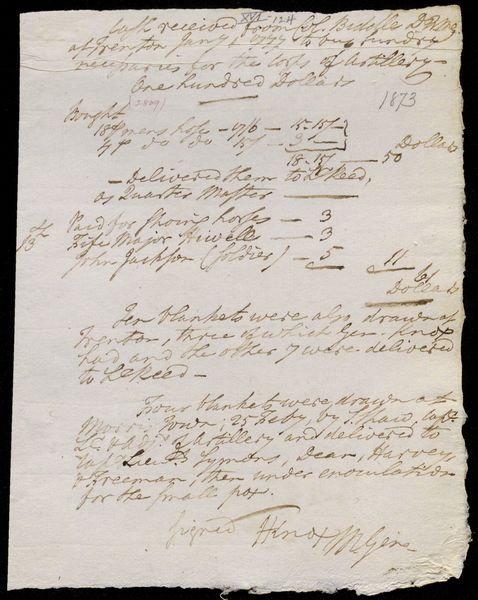 XVI 124
Cash received from Col. Biddle D.Q.M.G
at Trenton Jany 1 1777 to buy sundry
necessaries for the Corps of Artillery —
One hundred Dollars
(2809)
1873
Bought
18 p mens hose — 17/6 — 15.15/
4 p do do 15/ — 3
Dollars
18.15/ — 50
— Delivered them to Lt Reed,
as Quarter Master
Paid for Shoeing horses — 3
Fife Major Hiwell — 3
John Jackson (Soldier) — 5
11
61
Dollars
Ten blankets were also drawn at
Trenton, three of which Gen. Knox
had and the other 7 were delivered
to Lt Reed —
Four blankets were drawn at
Morris Town, 25 Feby, by S Shaw, Capt
Lt & Adjt of Artillery and delivered to
Lieuts Symons, Dean, Harvey,
& Freeman, then under enoculation
for the small pox.
Signed HKnox